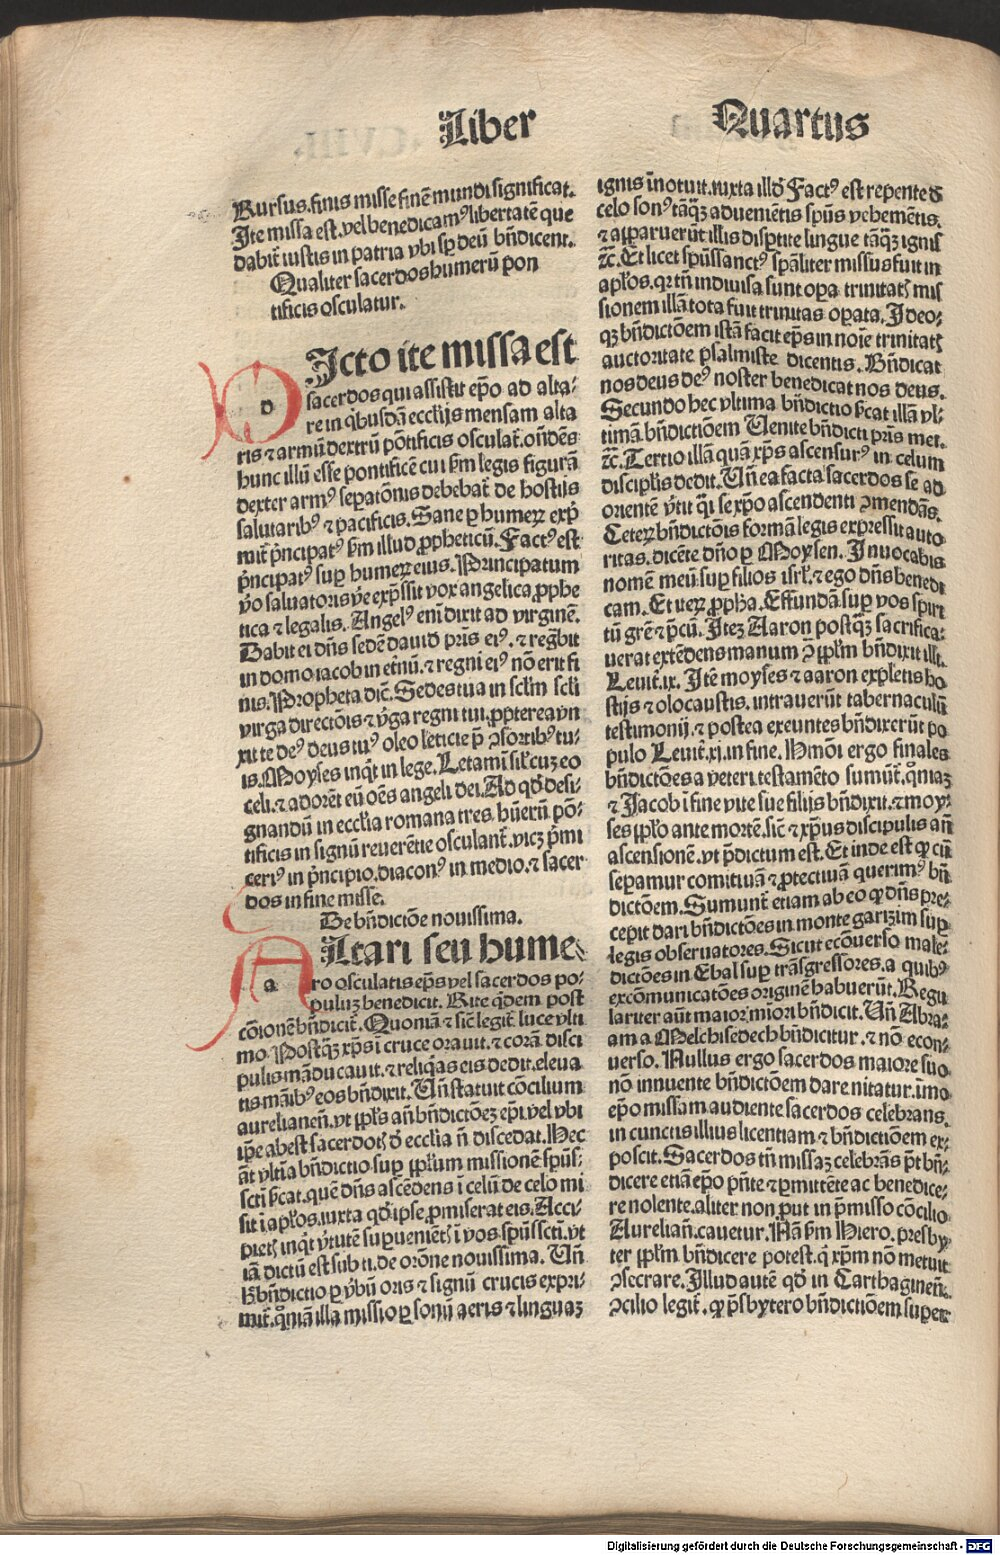 Liber Quartus
Rursus.finis misse finē mundi significat.
Ite missa est.vel benedicamꝰ libertatē que
dabit̄ iustis in patria vbi sp̄ deū bn̄dicent.
Qualiter sacerdos humerū pon
tificis osculatur.
DIcto ite missa est
sacerdos qui assistit ep̄o ad alta-
re in q̄busdā eccl̄ijs mensam alta
ris ⁊ armū dextrū pōtificis osculat̄. on̄dēs
hunc illū esse pontificē cui s̄m legis figurā
dexter armꝰ sep̄atōnis debebat̄ de hostijs
salutaribꝰ ⁊ pacificis. Sane ꝑ humerꝝ exp̄
mit̄ p̄ncipatꝰ s̄m illud ꝓpheticū. Factꝰ est
p̄ncipatꝰ suꝑ humerꝝ eius. Principatum
v̄o saluatoris v̄e exp̄ssit vox angelica ꝓphe
tica ⁊ legalis. Angelꝰ eni dixit ad virginē.
Dabit ei dn̄s sedē dauid pr̄is eiꝰ. ⁊ regn̄bit
in domo iacob in et̄nū.⁊ regni eiꝰ nō erit fi
nis. Propheta dic̄. Sedes tua in sc̄lm sc̄li
virga directōis ⁊ v̄ga regni tui. ꝓpterea vn
xit te deꝰ deus tuꝰ oleo leticie p̄ ꝯsortibꝰ tu-
is. Moyses inq̄t in lege. Letamī sil̄ cuꝫ eo
celi.⁊ adorēt eū oēs angeli dei. Ad qd̄ desi-
gnandū in eccl̄ia romana tres hūerū pō-
tificis in signū reuerētie osculant̄. vicꝫ p̄mi
ceriꝰ in p̄ncipio. diaconꝰ in medio.⁊ sacer
dos in fine misse.
De bn̄dictiōe nouissima.
ALtari seu hume
ro osculatis ep̄s vel sacerdos po-
puluꝫ benedicit. Rite q̄dem post
cōionē bn̄dicit̄. Quoniā ⁊ sic̄ legit̄ luce vlti
mo. Postq̄ꝫ xp̄s ī cruce orauit.⁊ corā disci
pulis māducauit.⁊ reliq̄as eis dedit. eleua
tis māibꝰ eos bn̄dixit. Vn̄ statuit cōcilium
aurelianeñ.vt ip̄ls añ bn̄dictōeꝫ ep̄i.vel vbi
ip̄e abest sacerdotꝭ d̄ eccl̄ia n̄ discedat. Hec
āt vlt̄ia bn̄dictio suꝑ ip̄l̄um missionē sp̄us-
sc̄ti s̄cat. quē dn̄s ascēdens ī celū de celo mi
sit ī ap̄los. iuxta qd̄ ipse ꝓmiserat eis. Acci
pietꝭ inq̄t v̄tutē suꝑuenietꝭ ī vos sp̄ussc̄ti.vt
iā dictū est sub ti.de orōne nouissima. Vn̄
bn̄dictio ꝑ v̄bū oris ⁊ signū crucis expri-
mit̄. qm̄iā illa missio ꝑ sonū aeris ⁊ linguaꝝ
ignis īnotuit. iuxta illd̄ Factꝰ est repente d̄
celo sonꝰ tāq̄ꝫ aduenietis sp̄us vehemētis.
⁊ apparuerūt illis disꝑtite lingue tāq̄ꝫ ignis
⁊c̄. Et licet sp̄ussanctꝰ sp̄aliter missus fuit in
ap̄los. qꝛ tn̄ indiuisa sunt oꝑa trinitatꝭ mis
sionem illā tota fuit trinitas oꝑata. Ideo-
qꝫ bn̄dictōem istā facit ep̄s in noīe trinitatꝭ
auctoritate psalmiste dicentis. Bn̄dicat
nos deus deꝰ noster benedicat nos deus.
Secundo hec vltima bn̄dictio s̄cat illā vl-
timā bn̄dictiōem Uenite bn̄dicti pr̄is mei.
⁊c̄. Tertio illā quā xp̄s ascensurꝰ in celum
discipl̄is dedit. Vn̄ ea facta sacerdos se ad
orientē v̄tit q̄i se xp̄o ascendenti ꝯmendās.
Ceterꝝ bn̄dictōis formā legis expressit auto
ritas. dicēte dn̄o ꝑ Moysen. Inuocabis
nomē meū suꝑ filios isrl̄.⁊ ego dn̄s benedi
cam. Et iterꝝ ꝓph̄a. Effundā suꝑ vos spiri
tū gr̄e ⁊ p̄cū. Iteꝫ Aaron postq̄ꝫ sacrifica-
uerat extēdens manum ꝯ̄ ip̄l̄m bn̄dixit illi.
Leuit̄.ix. Itē moyses ⁊ aaron expletis ho
stijs ⁊ olocaustis. intrauerūt tabernaculū
testimonij.⁊ postea exeuntes bn̄dixerūt po
pulo Leuit̄.xj.in fine. Hmōi ergo finales
bn̄dictōes a veteri testamēto sumūt̄. qm̄iaꝫ
⁊ Jacob ī fine vite sue filijs bn̄dixit.⁊ moy-
ses ip̄l̄o ante mortē. sic̄ ⁊ xp̄us discipulis añ
ascensionē.vt p̄dictum est. Et inde est qꝙ cū
sepamur comitiuā ⁊ ꝓtectiuā querimꝰ bn̄
dictōem. Sumunt̄ etiam ab eo qꝙ dn̄s pre-
cepit dari bn̄dictōes in monte garizim suꝑ
legis obseruatores. Sicut ecōuerso male-
dictōes in Ebal suꝑ trāsgressores. a quibꝰ
excōmunicatōes originē habuerūt. Regu
lariter aūt maior mīori bn̄dicit. Vn̄ Abra-
am a Melchisedech bn̄dicitur.⁊ nō econ-
uerso. Nullus ergo sacerdos maiore suo
nō innuente bn̄dictōem dare nitatur. īmo
ep̄o missam audiente sacerdos celebrans.
in cunctis illius licentiam ⁊ bn̄dictiōem ex-
poscit. Sacerdos tn̄ missaꝫ celebrās p̄t bn̄-
dicere etiā ep̄o p̄nte ⁊ ꝑmittēte ac benedice-
re nolente. aliter non. put in p̄misso cōcilio
Aurelian̄.cauetur. Nā s̄m Hiero.presby-
ter ip̄l̄m bn̄dicere potest. q̄ xp̄m nō metuit
ꝯsecrare. Illud autē qd̄ in Carthaginen̄.
ꝯcilio legit̄. qꝙ p̄sbytero bn̄dictiōem super
Digitalisierung gefördert durch die Deutsche Forschungsgemeinschaft - DFG